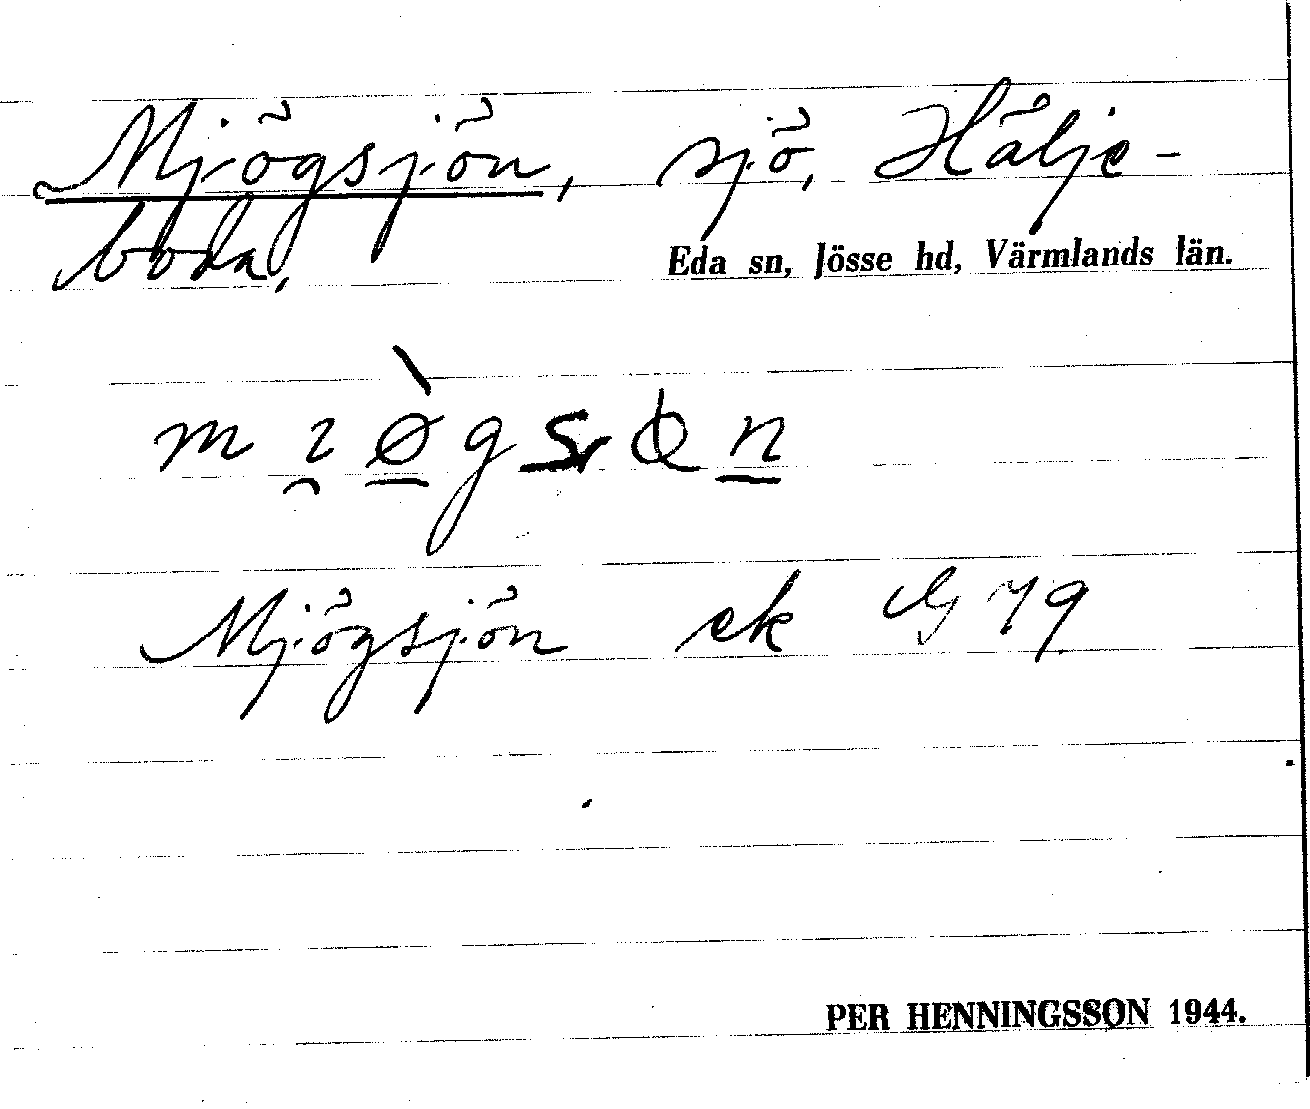 Mjögsjön, sjö, Hälje-
boda,
Eda sn, Jösse hd, Värmlands län.
Mjögsjön ek 79
PER HENNINGSSON 1944.